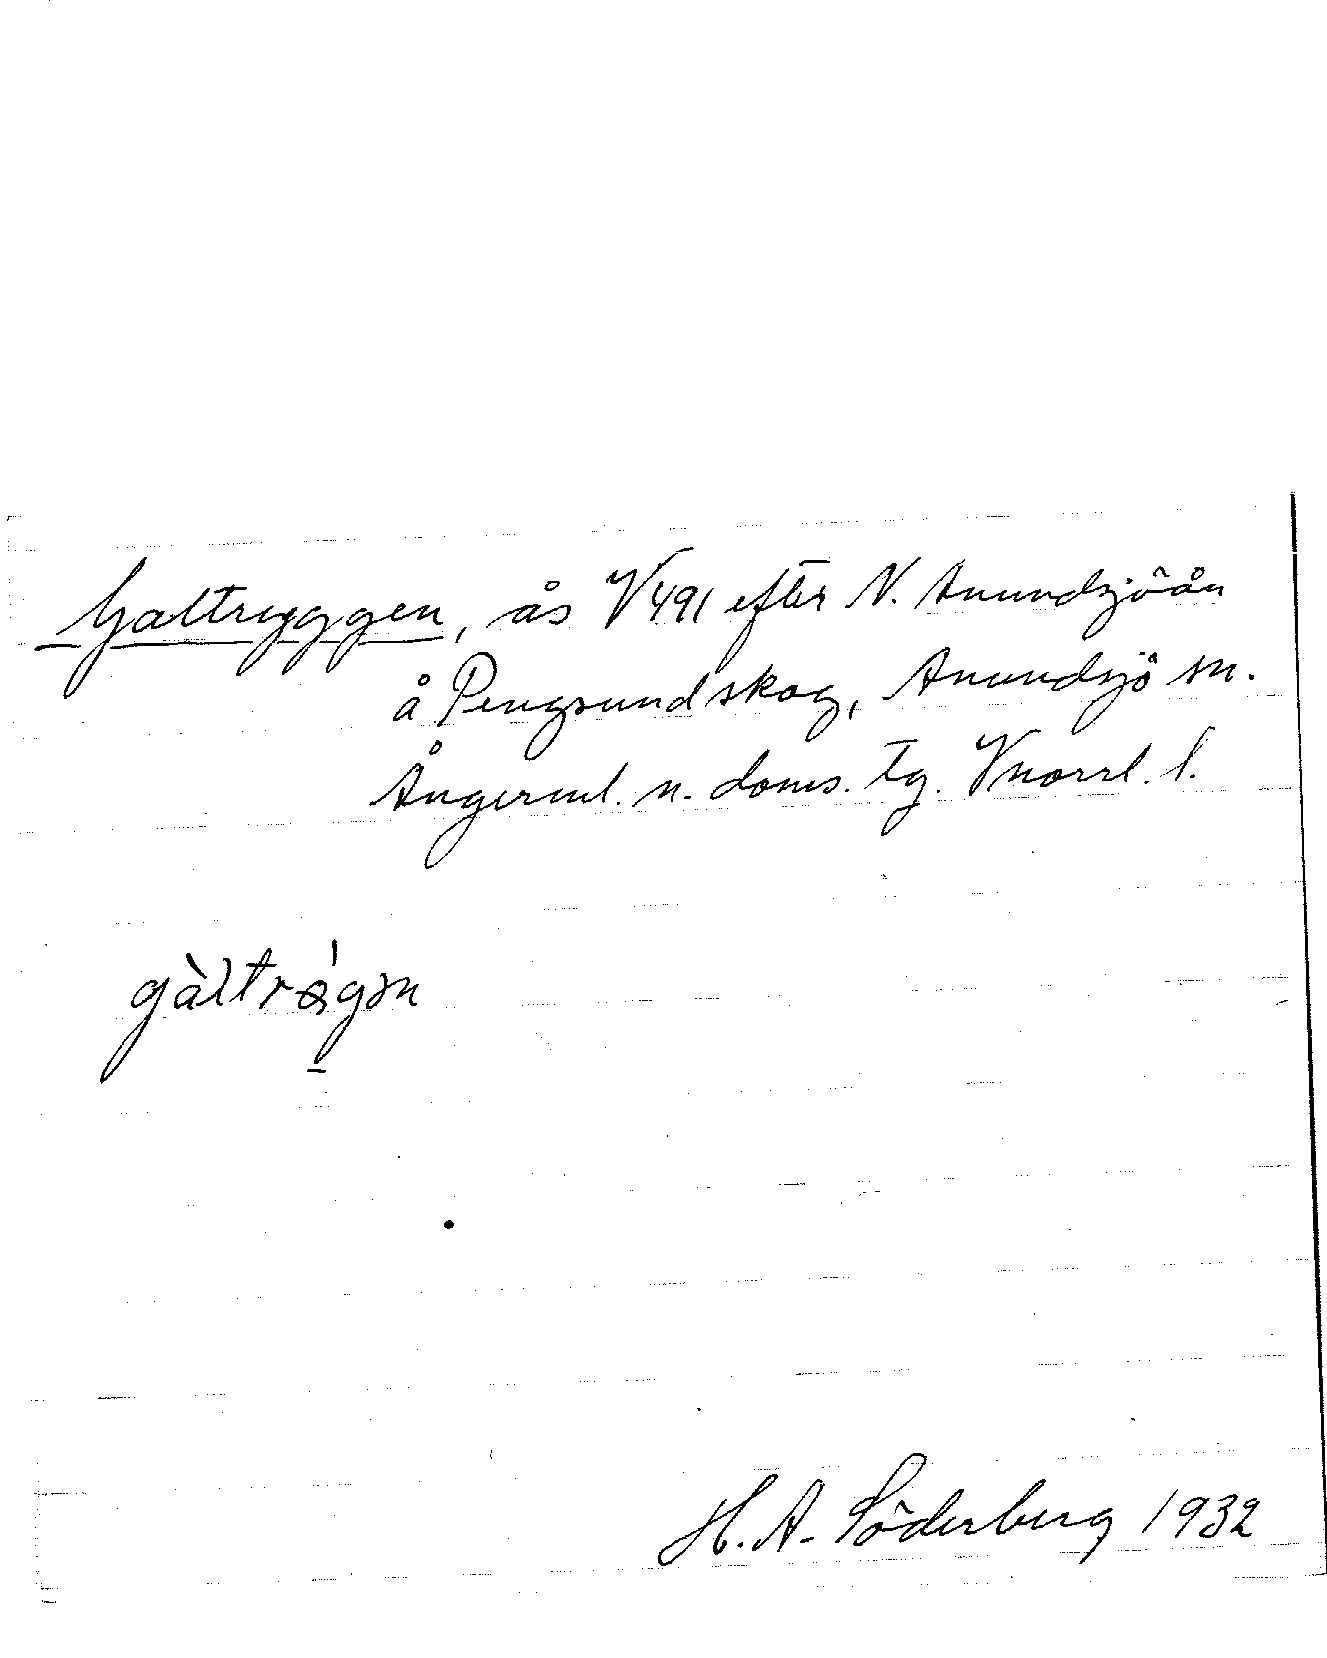 Galtryggen, ås V 491 efter N. Anundsjöån
å Pengsundskog, Anundsjö sn.
Ångerml. n. doms. tg. Vnorrl. l.
H. A. Söderberg 1932